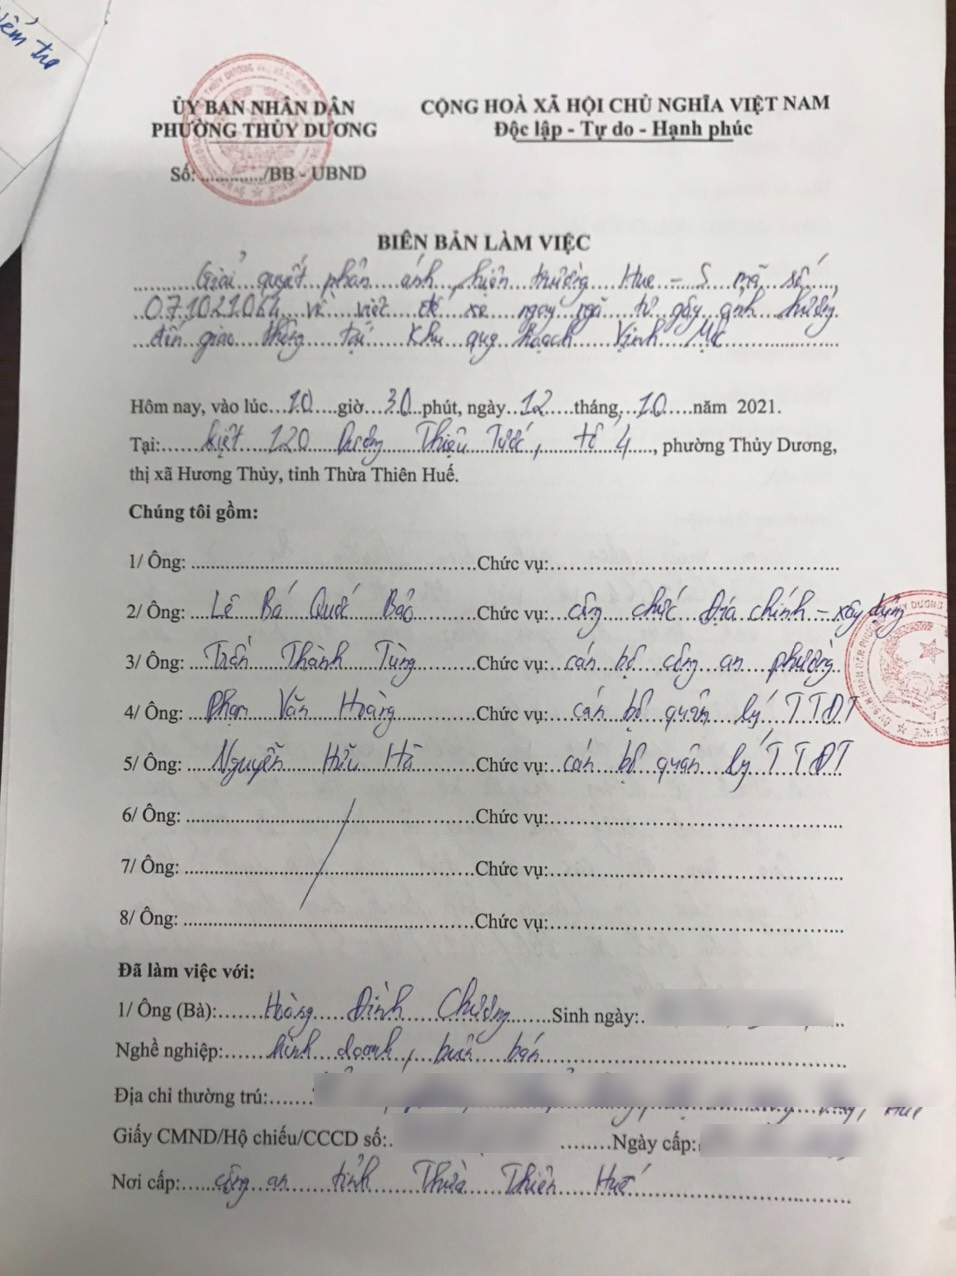 ỦY BAN NHÂN DÂN
PHƯỜNG THỦY DƯƠNG
CỘNG HOÀ XÃ HỘI CHỦ NGHĨA VIỆT NAM
Độc lập - Tự do - Hạnh phúc
Số:............./BB - UBND
BIÊN BẢN LÀM VIỆC
Giải quyết phản ánh hiện trường Hue - S mã số
07.1021.064 về việc để xe ngay ngã tư gây ảnh hưởng
đến giao thông tại Khu quy hoạch Vịnh Mộc
Hôm nay, vào lúc...10....giờ...30...phút, ngày..12...tháng...10....năm 2021.
Tại:......kiệt 120 Dương Thiệu Tước, tổ 4...., phường Thủy Dương,
thị xã Hương Thủy, tỉnh Thừa Thiên Huế.
Chúng tôi gồm:
1/ Ông: ..........Chức vụ:..........
2/ Ông: Lê Bá Quốc Bảo Chức vụ: công chức Địa chính - xây dựng
3/ Ông: Trần Thanh Tùng Chức vụ: cán bộ công an phường
4/ Ông: Phan Văn Hoàng Chức vụ: cán bộ quản lý TTĐT
5/ Ông: Nguyễn Hữu Hà Chức vụ: cán bộ quản lý TTĐT
6/ Ông: ..........Chức vụ:..........
7/ Ông: ..........Chức vụ:..........
8/ Ông: ..........Chức vụ:..........
Đã làm việc với:
1/ Ông (Bà):......Hoàng Đình Chương......Sinh ngày:.
Nghề nghiệp:......kinh doanh, buôn bán
Địa chỉ thường trú:....... Huế
Giấy CMND/Hộ chiếu/CCCD số:. ........Ngày cấp:
Nơi cấp:.....công an tỉnh Thừa Thiên Huế